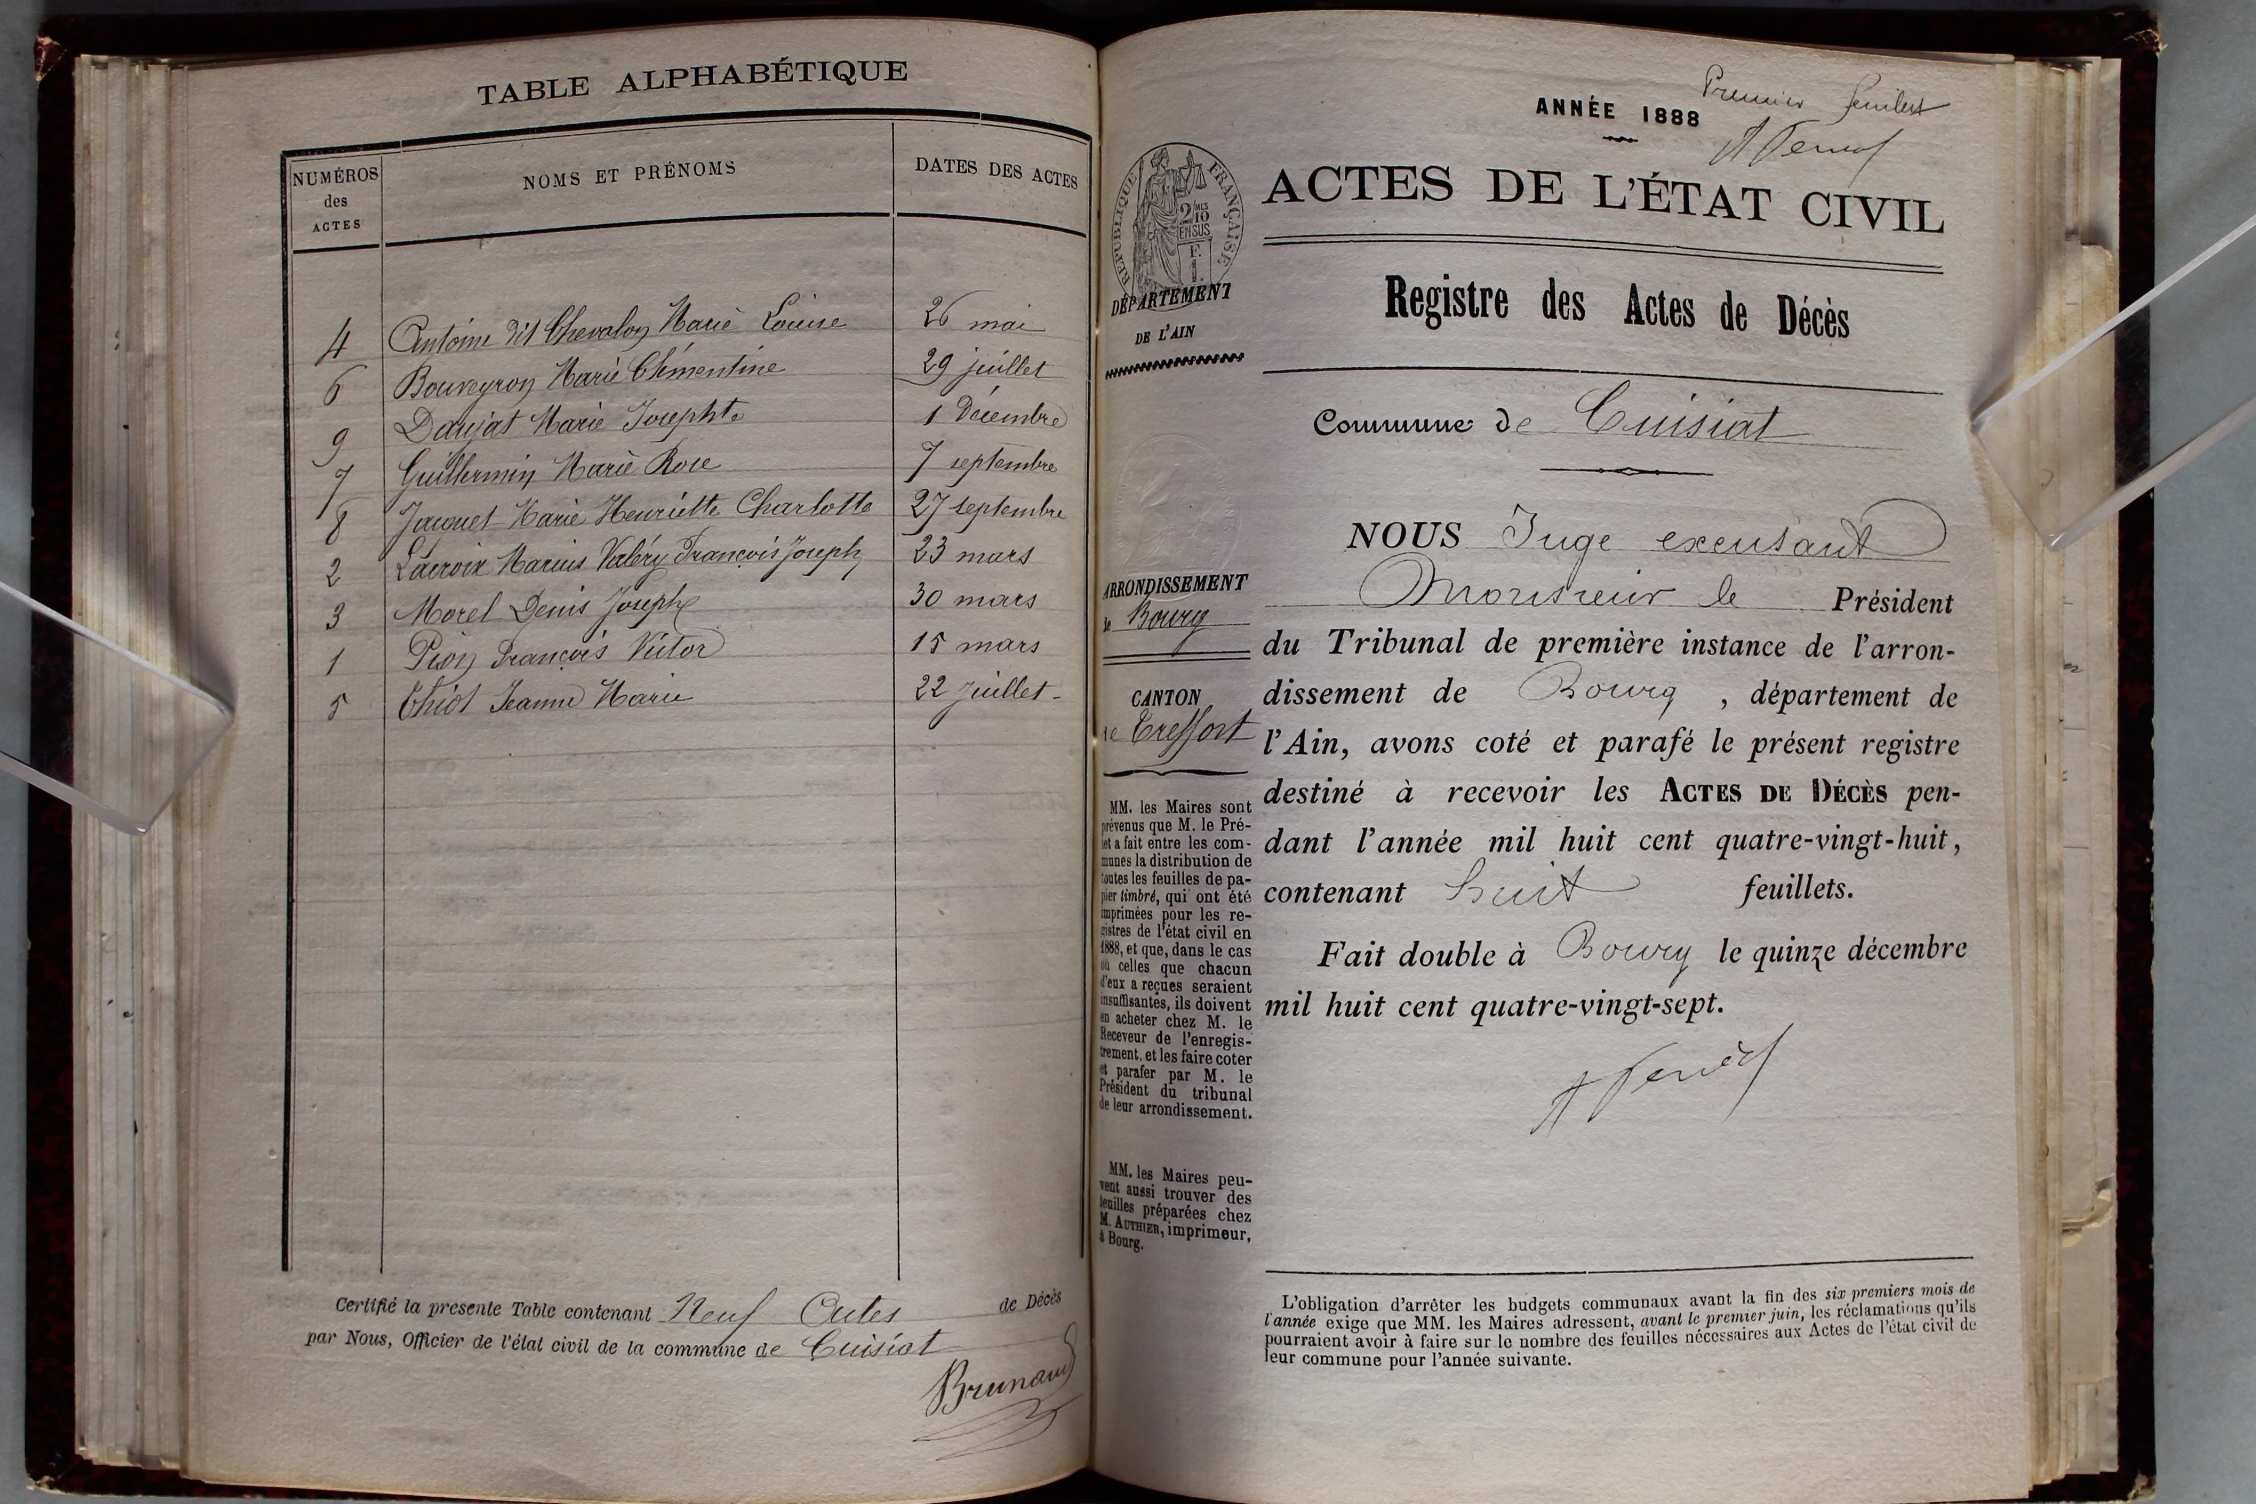 TABLE ALPHABÉTIQUE
NUMÉROS des ACTES
NOMS ET PRÉNOMS
DATES DES ACTES
4 Antoine dit Chevalon Marie Louise 26 mai
6 Bouveyron Marie Clémentine 29 juillet
9 Daujat Marie Josephte 1 Décembre
7 Guillermin Marie Rose 7 septembre
8 Jacquet Marie Henriette Charlotte 27 septembre
2 Lacroix Marius Valéry François Joseph 23 mars
3 Morel Denis Joseph 30 mars
1 Pion François Victor 15 mars
5 Thiot Jeanne Marie 22 juillet
Certifié la présente Table contenant Neuf Actes de Décès
par Nous, Officier de l'état civil de la commune de Cuisiat
Brunaud
Premier feuillet
ANNÉE 1888
ACTES DE L'ÉTAT CIVIL
RÉPUBLIQUE FRANÇAISE
2/10 MES
EN SUS
F.
1.
DÉPARTEMENT
DE L'AIN
Registre des Actes de Décès
Commune de Cuisiat
ARRONDISSEMENT
de Bourg
CANTON
de Treffort
NOUS Juge excusant
Monsieur le Président
du Tribunal de première instance de l'arron-
dissement de Bourg, département de
l'Ain, avons coté et parafé le présent registre
destiné à recevoir les ACTES DE DÉCÈS pen-
dant l'année mil huit cent quatre-vingt-huit,
contenant huit feuillets.
Fait double à Bourg le quinze décembre
mil huit cent quatre-vingt-sept.
MM. les Maires sont
prévenus que M. le Pré-
fet a fait entre les com-
munes la distribution de
toutes les feuilles de pa-
pier timbré, qui ont été
imprimées pour les re-
gistres de l'état civil en
1888, et que, dans le cas
où celles que chacun
d'eux a reçues seraient
insuffisantes, ils doivent
en acheter chez M. le
Receveur de l'enregis-
trement, et les faire coter
et parafer par M. le
Président du tribunal
de leur arrondissement.
MM. les Maires peu-
vent aussi trouver des
feuilles préparées chez
M. AUTHIER, imprimeur,
à Bourg.
L'obligation d'arrêter les budgets communaux avant la fin des six premiers mois de
l'année exige que MM. les Maires adressent, avant le premier juin, les réclamations qu'ils
pourraient avoir à faire sur le nombre des feuilles nécessaires aux Actes de l'état civil de
leur commune pour l'année suivante.